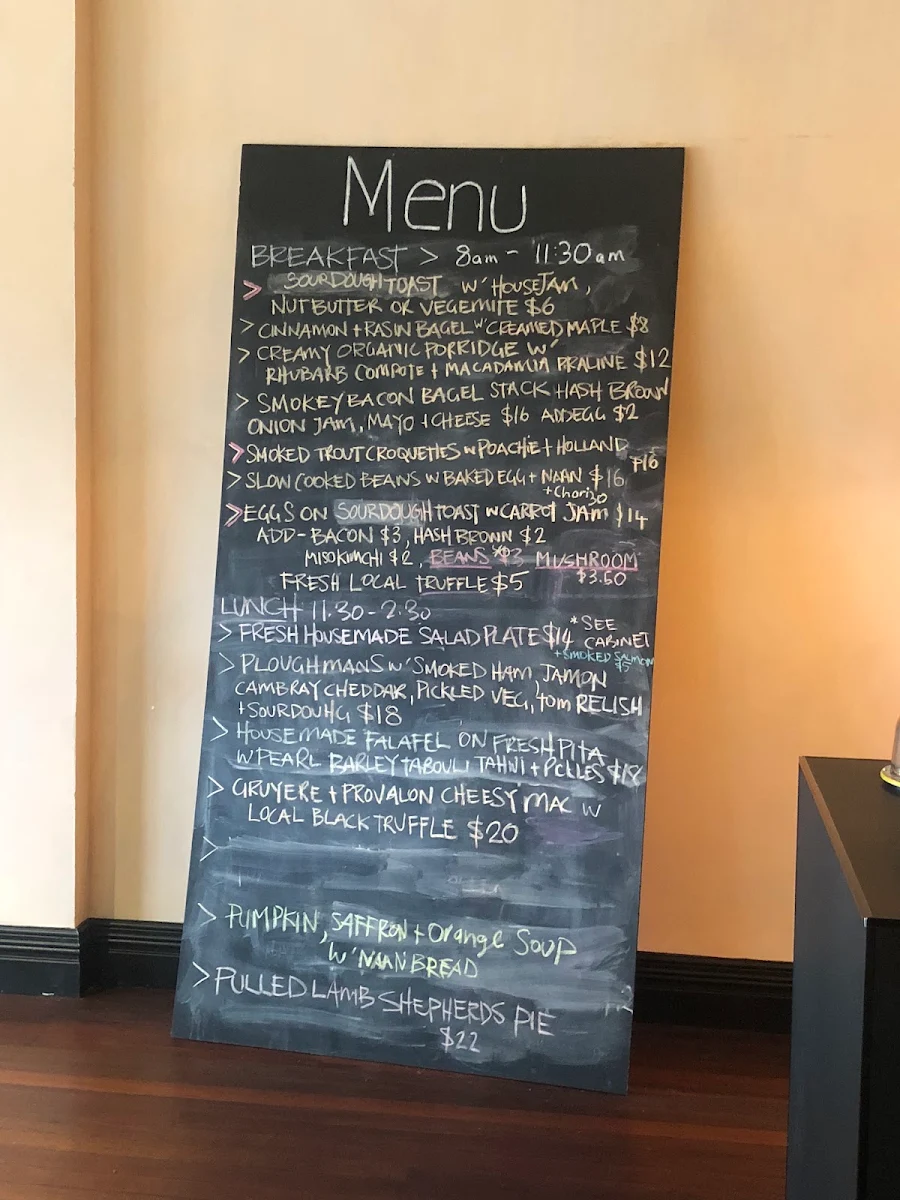 Menu
BREAKFAST > 8am - 11:30am
> SOURDOUGH TOAST W' HOUSEJAM,
NUTBUTTER OR VEGEMITE $6
> CINNAMON + RASIN BAGEL W' CREAMED MAPLE $8
> CREAMY ORGANIC PORRIDGE W'
RHUBARB COMPOTE + MACADAMIA PRALINE $12
> SMOKEY BACON BAGEL STACK HASH BROWN
ONION JAM, MAYO + CHEESE $16 ADD EGG $2
> SMOKED TROUT CROQUETTES W POACHIE + HOLLAND
$16
> SLOW COOKED BEANS W BAKED EGG + NAAN $16
+ Chorizo
> EGGS ON SOURDOUGH TOAST W CARROT JAM $14
ADD - BACON $3, HASH BROWN $2
MISO KIMCHI $2, BEANS $3 MUSHROOM
$3.50
FRESH LOCAL TRUFFLE $5
LUNCH 11.30 - 2.30
> FRESH HOUSEMADE SALAD PLATE $14 * SEE
CABINET
+ SMOKED SALMON
$5
> PLOUGHMANS W' SMOKED HAM, JAMON
CAMBRAY CHEDDAR, PICKLED VEG, tom RELISH
+ SOURDOUHG $18
> HOUSEMADE FALAFEL ON FRESH PITA
W PEARL BARLEY TABOULI TAHINI + PICKLES $18
> GRUYERE + PROVALON CHEESY MAC W
LOCAL BLACK TRUFFLE $20
>
> PUMPKIN, SAFFRON + Orange Soup
W' NAAN BREAD
> PULLED LAMB SHEPHERDS PIE
$22